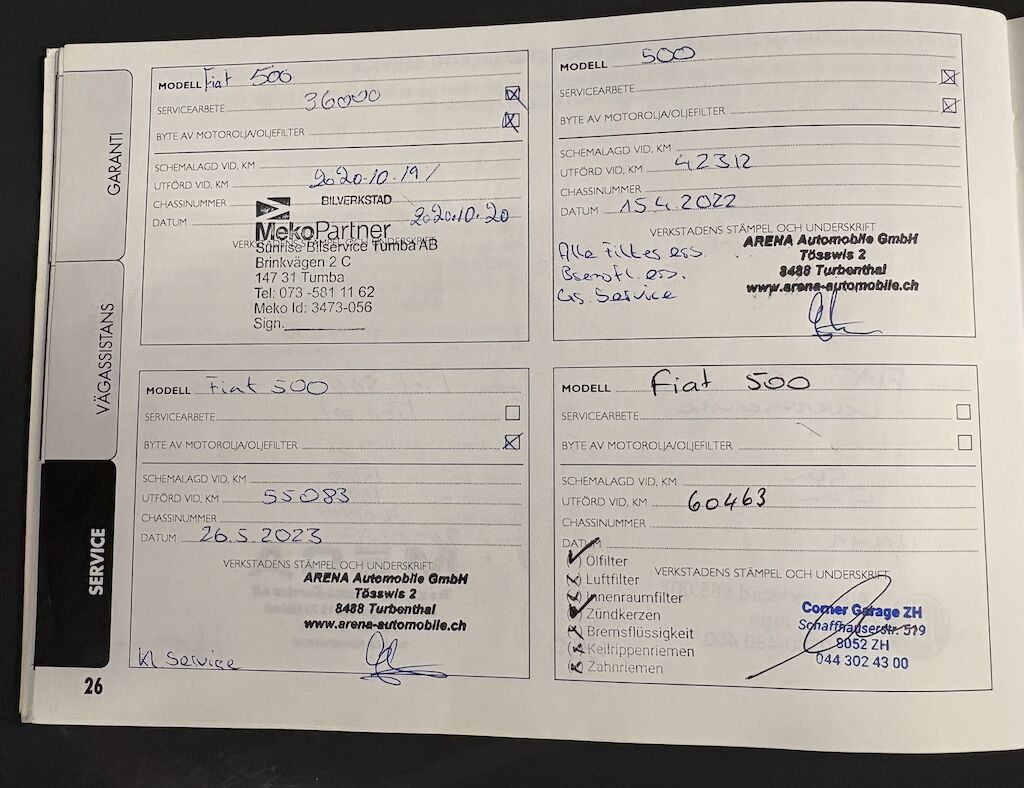 GARANTI
VÄGASSISTANS
SERVICE
26
MODELL Fiat 500
SERVICEARBETE 36000
BYTE AV MOTOROLJA/OLJEFILTER
SCHEMALAGD VID, KM
UTFÖRD VID, KM 2020-10-19/
CHASSINUMMER
BILVERKSTAD
DATUM 2020.10.20
MekoPartner
VERKSTADENS STÄMPEL OCH UNDERSKRIFT
Sunrise Bilservice Tumba AB
Brinkvägen 2 C
147 31 Tumba
Tel: 073 -581 11 62
Meko Id: 3473-056
Sign.
MODELL 500
SERVICEARBETE
BYTE AV MOTOROLJA/OLJEFILTER
SCHEMALAGD VID, KM
UTFÖRD VID, KM 42312
CHASSINUMMER
DATUM 15.4.2022
VERKSTADENS STÄMPEL OCH UNDERSKRIFT
Alle Filter ers.
Bremsfl. ers.
Gs. Service
ARENA Automobile GmbH
Tösswis 2
8488 Turbenthal
www.arena-automobile.ch
MODELL Fiat 500
SERVICEARBETE
BYTE AV MOTOROLJA/OLJEFILTER
SCHEMALAGD VID, KM
UTFÖRD VID, KM 55083
CHASSINUMMER
DATUM 26.5.2023
VERKSTADENS STÄMPEL OCH UNDERSKRIFT
ARENA Automobile GmbH
Tösswis 2
8488 Turbenthal
www.arena-automobile.ch
Kl Service
MODELL Fiat 500
SERVICEARBETE
BYTE AV MOTOROLJA/OLJEFILTER
SCHEMALAGD VID, KM
UTFÖRD VID, KM 60463
CHASSINUMMER
DATUM
Ölfilter
VERKSTADENS STÄMPEL OCH UNDERSKRIFT
Luftfilter
Innenraumfilter
Zündkerzen
Bremsflüssigkeit
Keilrippenriemen
Zahnriemen
Corner Garage ZH
Schaffhauserstr. 519
8052 ZH
044 302 43 00